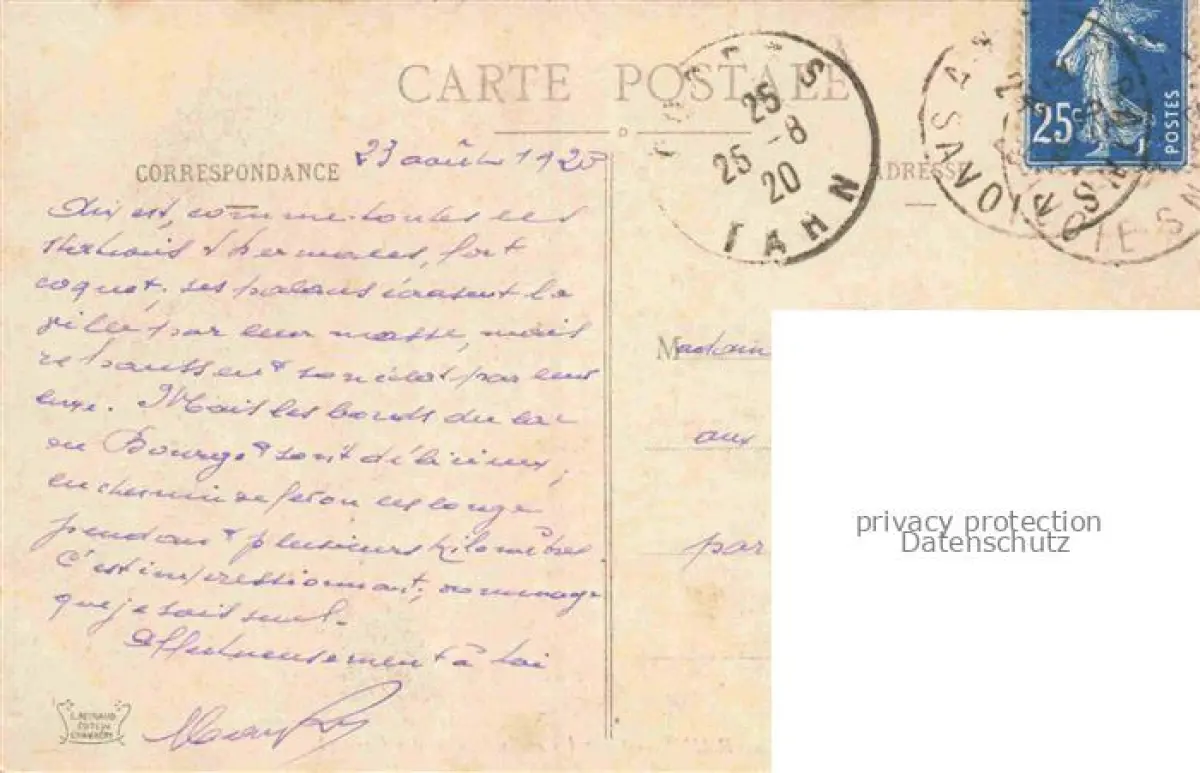 CARTE POSTALE
CORRESPONDANCE
ADRESSE
23 août 1920
Aix est, comme toutes les
stations thermales, fort
coquet. Ses palaces écrasent la
ville par leur masse, mais
rehaussent son éclat par leur
luxe. Mais les bords du lac
du Bourget sont délicieux,
le chemin de fer on les longe
pendant plusieurs kilomètres
c'est impressionnant; dommage
que je sois seul.
Affectueusement à toi
25
25 - 8
20
TARN
SAVOIE
25c
POSTES
Madam
aux
par
privacy protection
Datenschutz